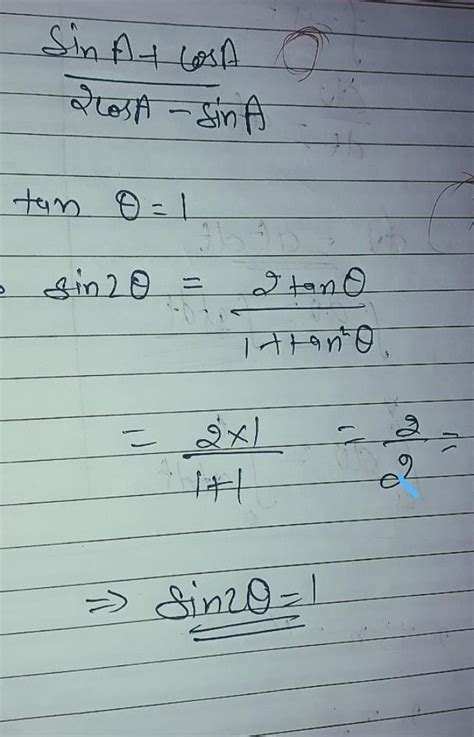 sin A + cos A
2 cos A - sin A
tan θ = 1
sin2θ = 2 tan θ
1 + tan²θ
= 2×1 = 2 =
1+1 2
⇒ sin2θ = 1